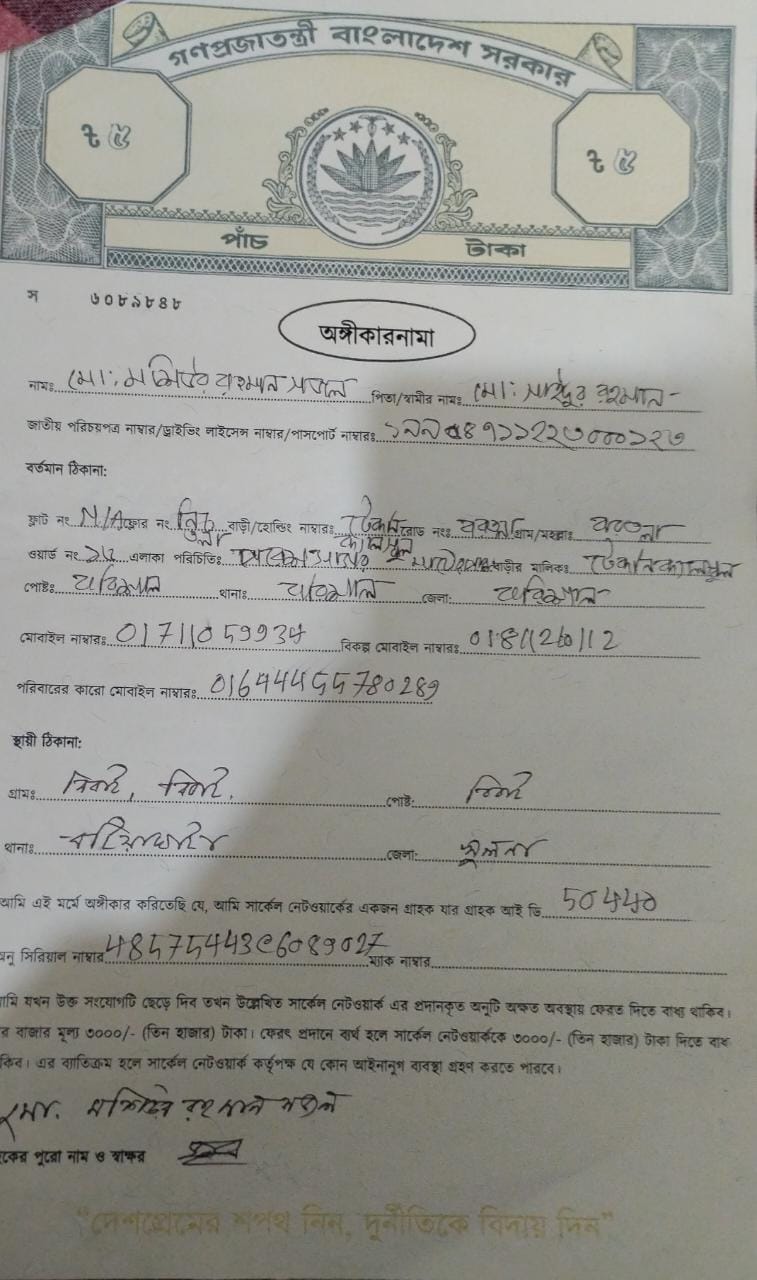 গণপ্রজাতন্ত্রী বাংলাদেশ সরকার
ট ৫ ট ৫
পাঁচ টাকা
স ৬০৮৯৮৪৮
অঙ্গীকারনামা
নামঃ মো: মশিউর রহমান সজল পিতা/স্বামীর নামঃ মো: সাইদুর রহমান
জাতীয় পরিচয়পত্র নাম্বার/ড্রাইভিং লাইসেন্স নাম্বার/পাসপোর্ট নাম্বারঃ
বর্তমান ঠিকানা:
ফ্লাট নং N/A ফ্লোর নং নিচ তলা বাড়ী/হোল্ডিং নাম্বারঃ রোড নংঃ গ্রাম/মহল্লাঃ
ওয়ার্ড নং এলাকা পরিচিতিঃ বাড়ীর মালিকঃ
পোষ্টঃ বরিশাল থানাঃ বরিশাল জেলা: বরিশাল
মোবাইল নাম্বারঃ 01711059934 বিকল্প মোবাইল নাম্বারঃ
পরিবারের কারো মোবাইল নাম্বারঃ 01644455780289
স্থায়ী ঠিকানা:
গ্রামঃ পোষ্ট:
থানাঃ বটিয়াঘাটা জেলা: খুলনা
আমি এই মর্মে অঙ্গীকার করিতেছি যে, আমি সার্কেল নেটওয়ার্কের একজন গ্রাহক যার গ্রাহক আই ডি 50440
অনু সিরিয়াল নাম্বার 48575443C6089027 ম্যাক নাম্বার
আমি যখন উক্ত সংযোগটি ছেড়ে দিব তখন উল্লেখিত সার্কেল নেটওয়ার্ক এর প্রদানকৃত অনুটি অক্ষত অবস্থায় ফেরত দিতে বাধ্য থাকিব।
র বাজার মূল্য ৩০০০/- (তিন হাজার) টাকা। ফেরৎ প্রদানে ব্যর্থ হলে সার্কেল নেটওয়ার্ককে ৩০০০/- (তিন হাজার) টাকা দিতে বাধ্য
কিব। এর ব্যতিক্রম হলে সার্কেল নেটওয়ার্ক কর্তৃপক্ষ যে কোন আইনানুগ ব্যবস্থা গ্রহণ করতে পারবে।
মো. মশিউর রহমান সজল
হকের পুরো নাম ও স্বাক্ষর
“দেশপ্রেমের শপথ নিন, দুর্নীতিকে বিদায় দিন”